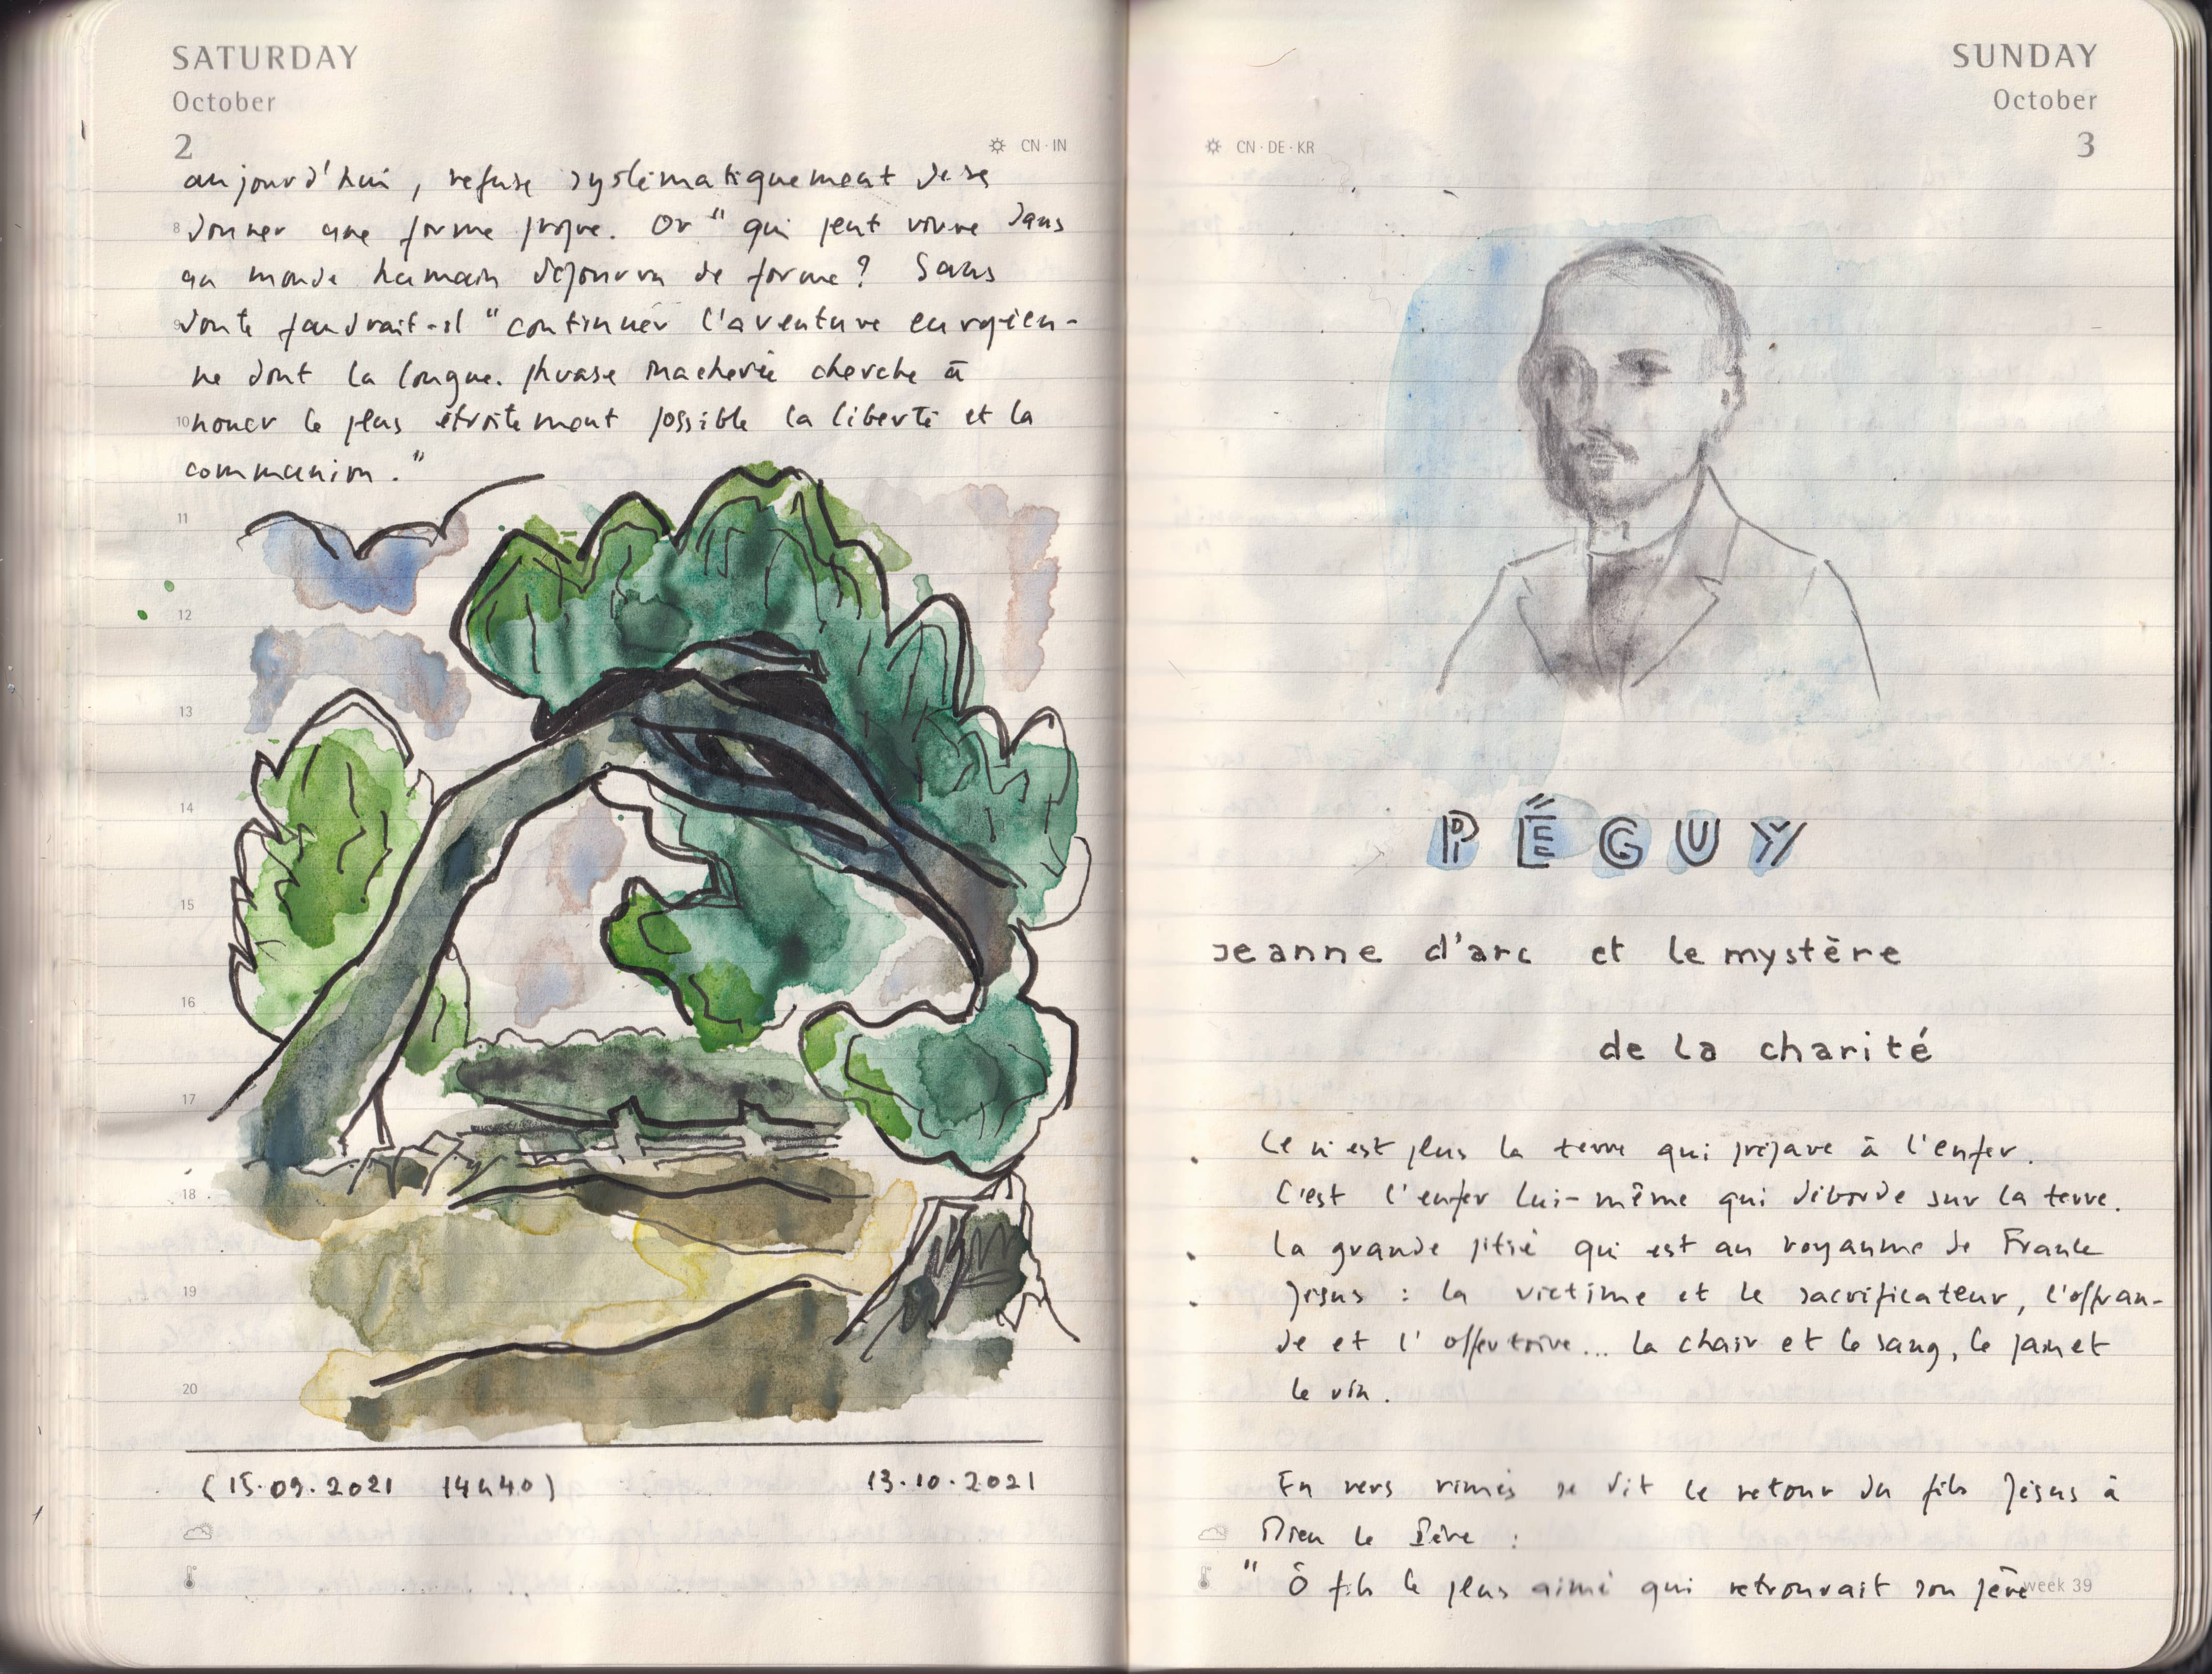 SATURDAY
October
2
CN · IN
aujourd'hui, refuse systématiquement de se
8
donner une forme propre. Or " qui peut vivre dans
un monde humain dépourvu de forme ? Sans
9
doute faudrait-il " continuer l'aventure européen-
ne dont la longue phrase inachevée cherche à
10
nouer le plus étroitement possible la liberté et la
communion. "
11
12
13
14
15
16
17
18
19
20
(15.09.2021 14h40)
13.10.2021
SUNDAY
October
3
CN · DE · KR
PÉGUY
Jeanne d'arc et le mystère
de la charité
. Ce n'est plus la terre qui prépare à l'enfer.
C'est l'enfer lui-même qui déborde sur la terre.
. La grande pitié qui est au royaume de France
. Jésus : la victime et le sacrificateur, l'offran-
de et l'offertoire... la chair et le sang, le pain et
le vin.
En vers rimés se dit le retour du fils Jésus à
Dieu le Père :
" Ô fils le plus aimé qui retrouvait son père
week 39